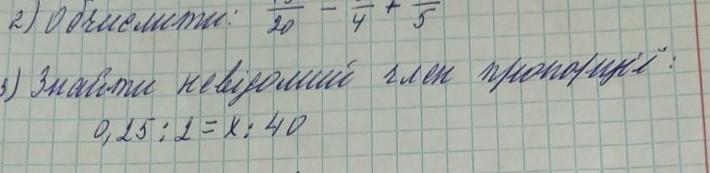 2) Обчислити: /20 - /4 + /5
3) Знайти невідомий член пропорції:
0,25 : 2 = x : 40